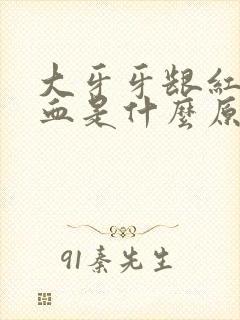 大牙牙龈紅
血是什麼原
91秦先生